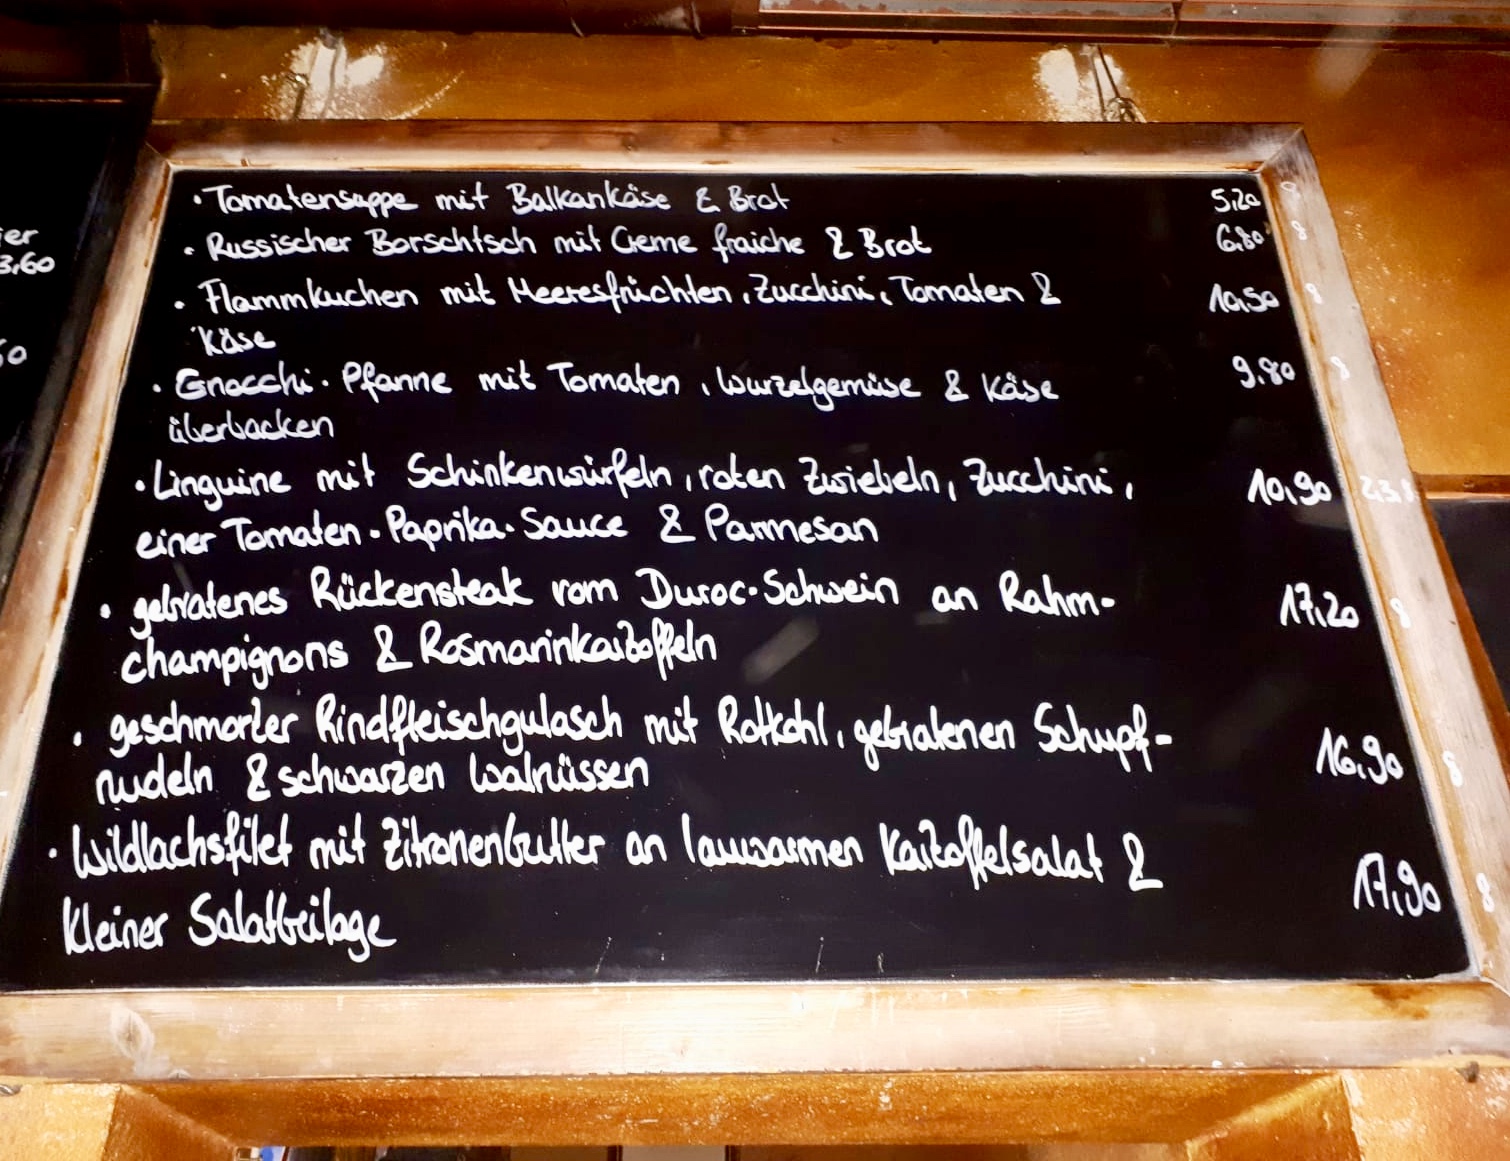 · Tomatensuppe mit Balkankäse & Brot 5,20 8
· Russischer Borschtsch mit Creme fraiche & Brot 6,80 8
· Flammkuchen mit Meeresfrüchten, Zucchini, Tomaten & 10,50 8
Käse
· Gnocchi-Pfanne mit Tomaten, Wurzelgemüse & Käse 9,80 8
überbacken
· Linguine mit Schinkenwürfeln, roten Zwiebeln, Zucchini, 10,90 2,3,8
einer Tomaten-Paprika-Sauce & Parmesan
· gebratenes Rückensteak vom Duroc-Schwein an Rahm- 17,20 8
champignons & Rosmarinkartoffeln
· geschmorter Rindfleischgulasch mit Rotkohl, gebratenen Schupf- 16,90 8
nudeln & schwarzen Walnüssen
· Wildlachsfilet mit Zitronenbutter an lauwarmen Kartoffelsalat & 17,90 8
kleiner Salatbeilage
er
3,60